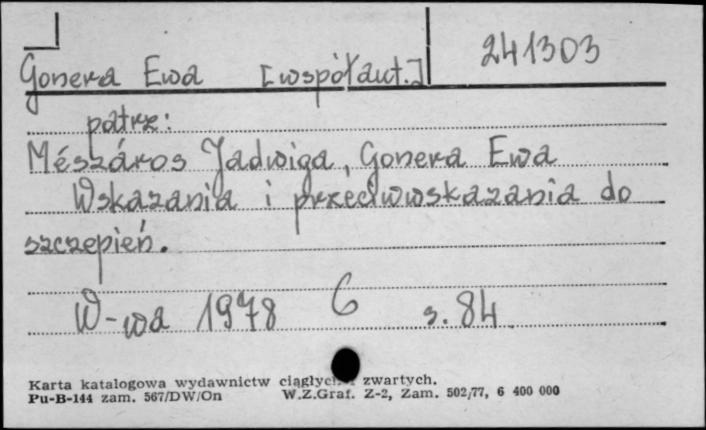 Gonera Ewa [współaut.] 241303
patrz:
Mészáros Jadwiga, Gonera Ewa
Wskazania i przeciwwskazania do
szczepień.
W-wa 1978 6 s. 84
Karta katalogowa wydawnictw ciągłych i zwartych.
Pu-B-144 zam. 567/DW/On W.Z.Graf. Z-2, Zam. 502/77, 6 400 000